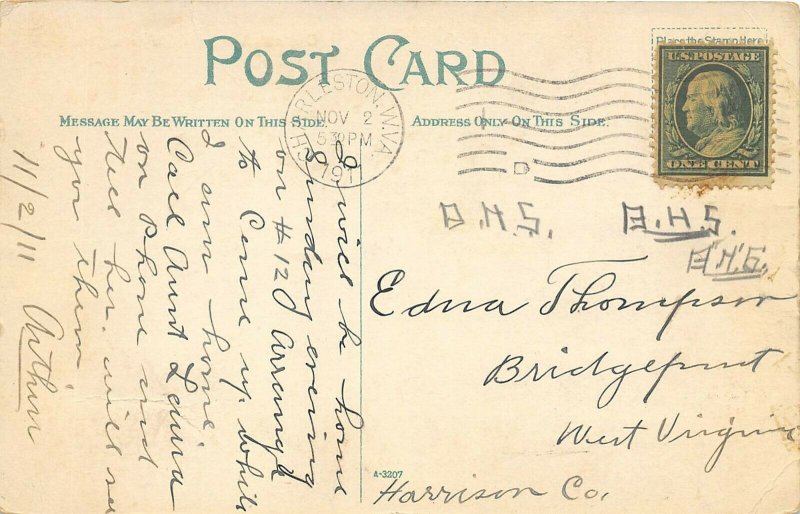 POST CARD
Place the Stamp Here
U.S. POSTAGE
ONE CENT
MESSAGE MAY BE WRITTEN ON THIS SIDE
ADDRESS ONLY ON THIS SIDE.
CHARLESTON, W.VA.
NOV 2
530 PM
1911
D
I will be home
Sunday evening
on #12 Arrange
to Come up while
I am home.
Call Aunt Laura
on Phone and
tell her. will see
you then.
11/2/11 Arthur
D.H.S.
B.H.S.
B.H.G.
Edna Thompson
Bridgeport
West Virginia
Harrison Co.
A-3207